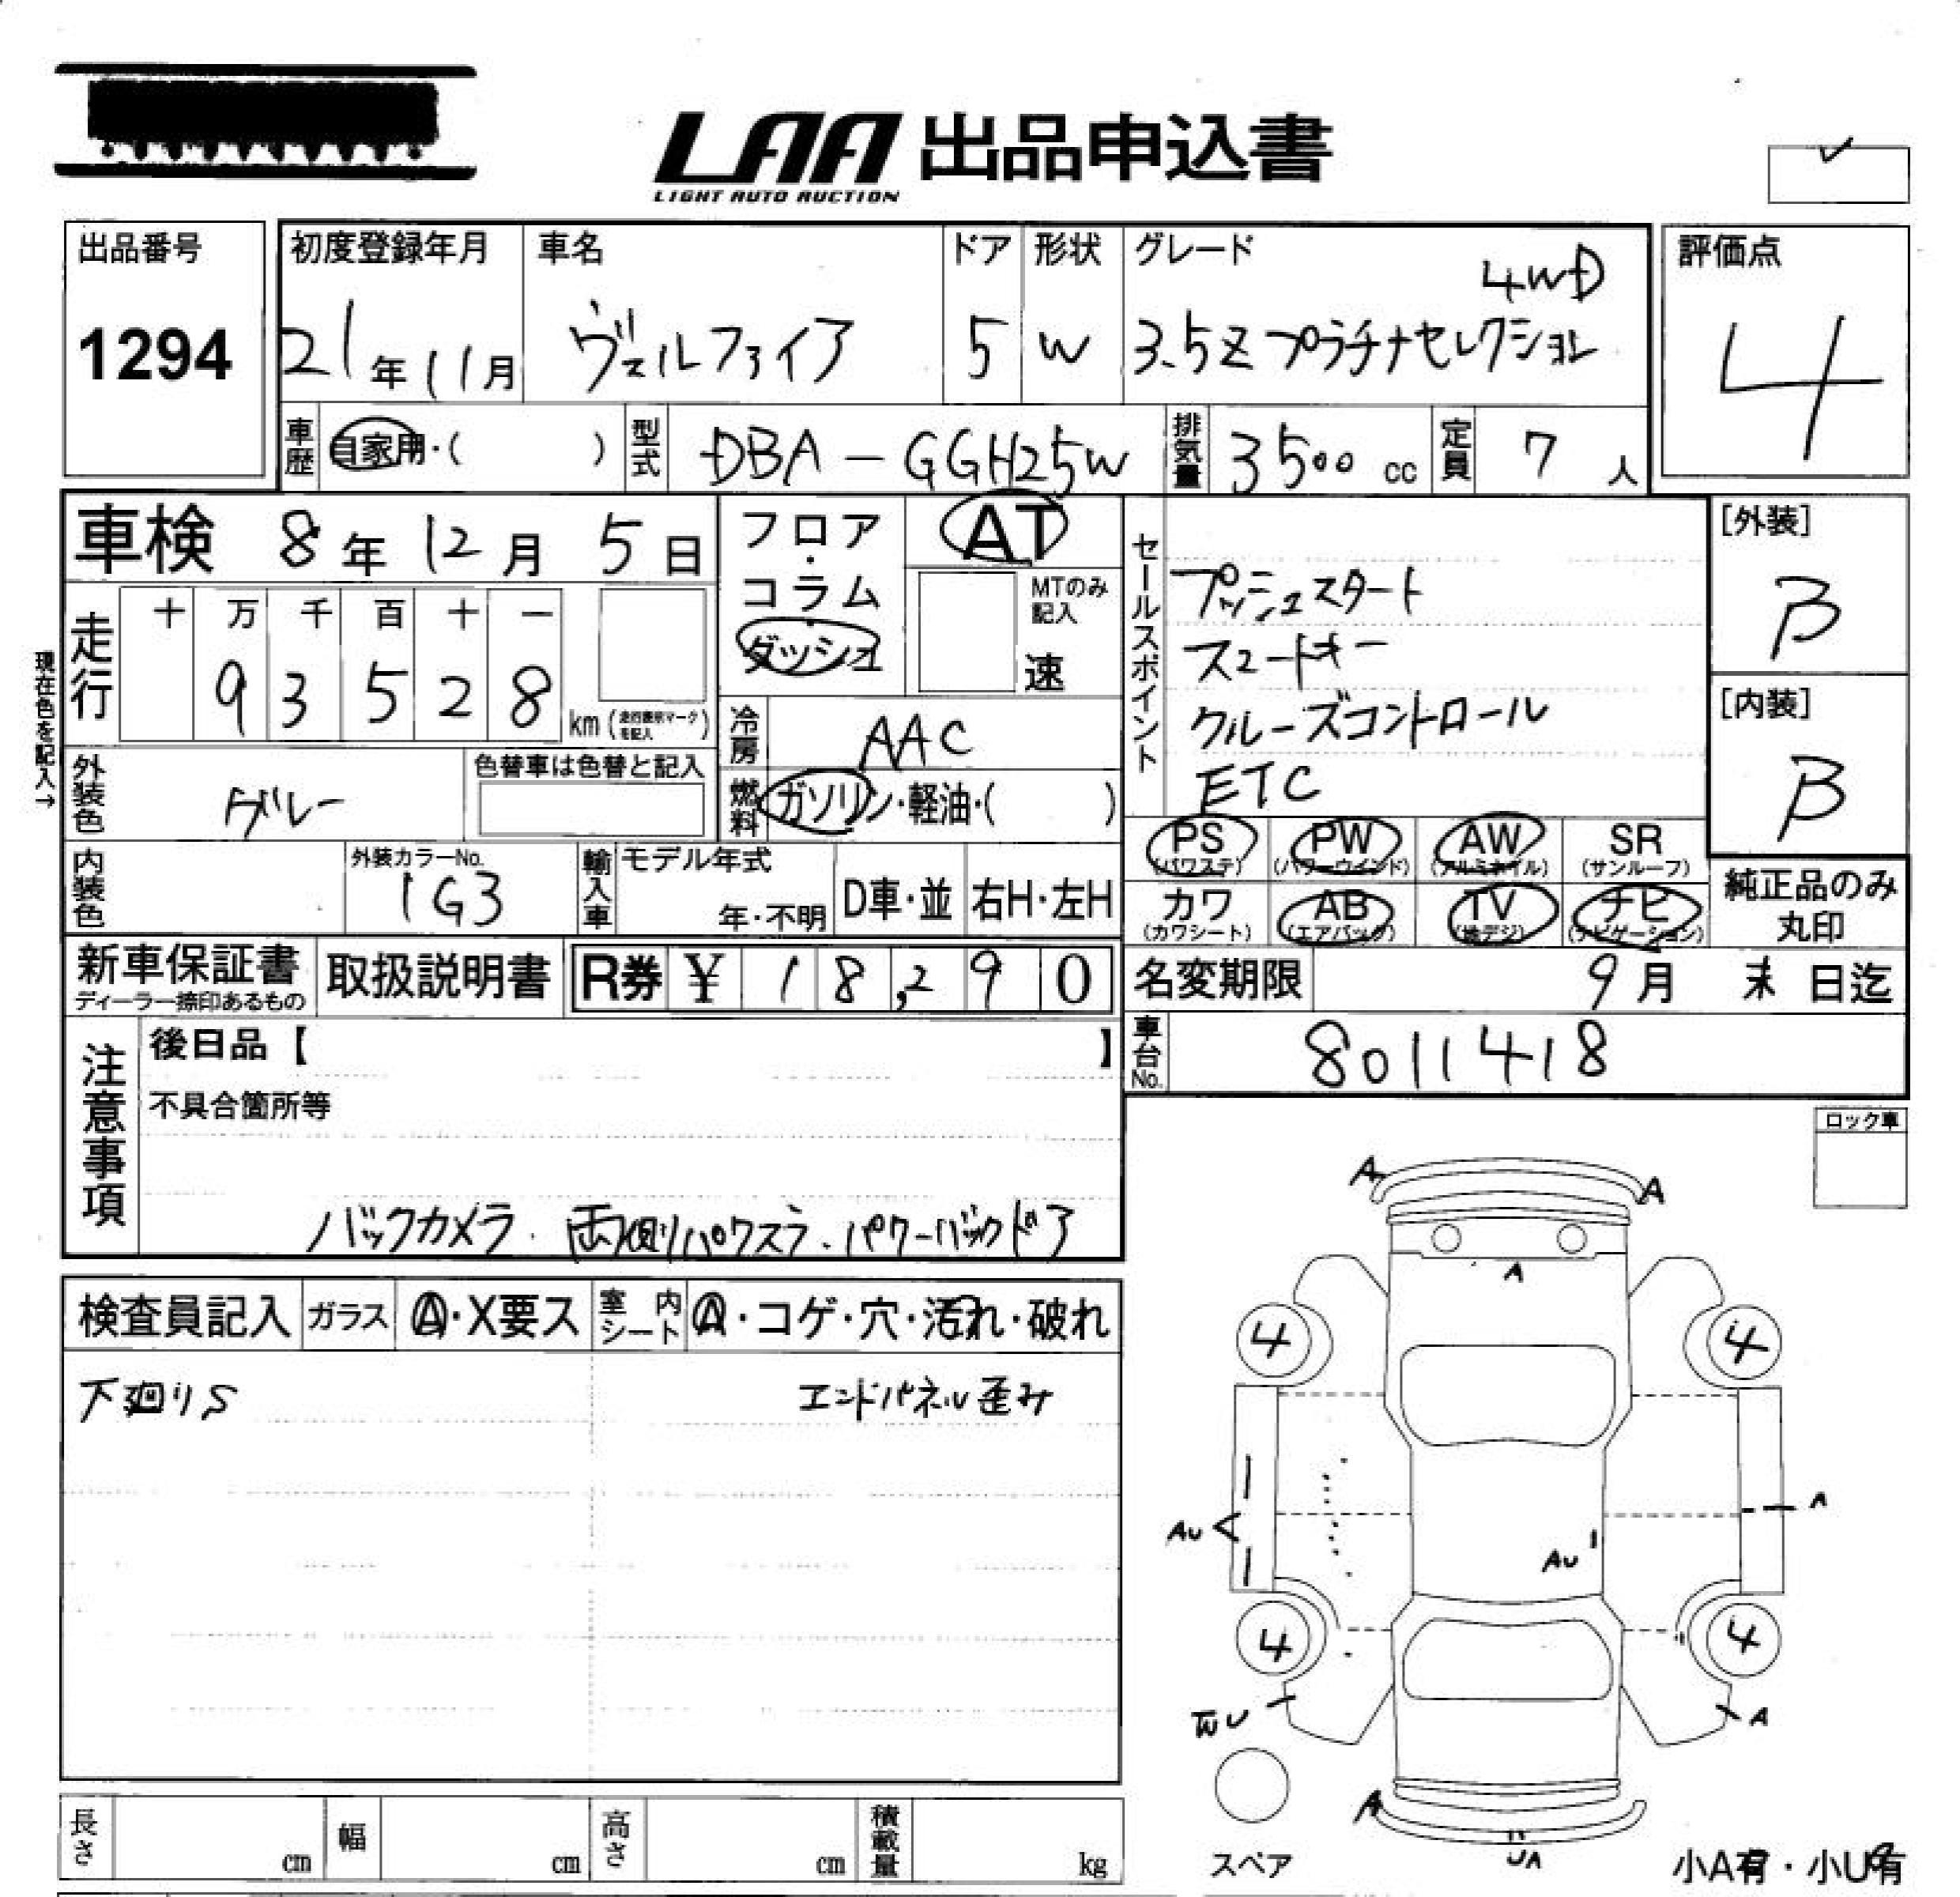 LAA 出品申込書
LIGHT AUTO AUCTION
出品番号
1294
初度登録年月
21年11月
車名
ヴェルファイア
ドア
5
形状
W
グレード
4WD
3.5Z プラチナセレクション
評価点
4
車歴
自家用・( )
型式
DBA-GGH25W
排気量
3500 cc
定員
7 人
車検 8年12月5日
現在色を記入→
走行
十 万 千 百 十 一
9 3 5 2 8
km (走行表示マークを記入)
フロア・コラム・ダッシュ
AT
MTのみ記入
速
冷房
AAC
燃料
ガソリン・軽油・( )
セールスポイント
プッシュスタート
スマートキー
クルーズコントロール
ETC
[外装]
B
[内装]
B
外装色
グレー
色替車は色替と記入
内装色
外装カラーNo.
1G3
輸入車
モデル年式
年・不明
D車・並
右H・左H
PS
(パワステ)
PW
(パワーウインド)
AW
(アルミホイル)
SR
(サンルーフ)
カワ
(カワシート)
AB
(エアバック)
TV
(地デジ)
ナビ
(ナビゲーション)
純正品のみ
丸印
新車保証書
ディーラー捺印あるもの
取扱説明書
R券 ¥ 18,290
名変期限
9月 末 日迄
車台No.
8011418
注意事項
後日品【 】
不具合箇所等
バックカメラ. 両側パワスラ. パワーバックドア
ロック車
検査員記入
ガラス
A・X要ス
室内シート
A・コゲ・穴・汚れ・破れ
下廻りS
エンドパネル歪み
A
A
A
4
4
AU
AU
A
4
4
A
A
UA
スペア
小A有・小U有
長さ
cm
幅
cm
高さ
cm
積載量
kg